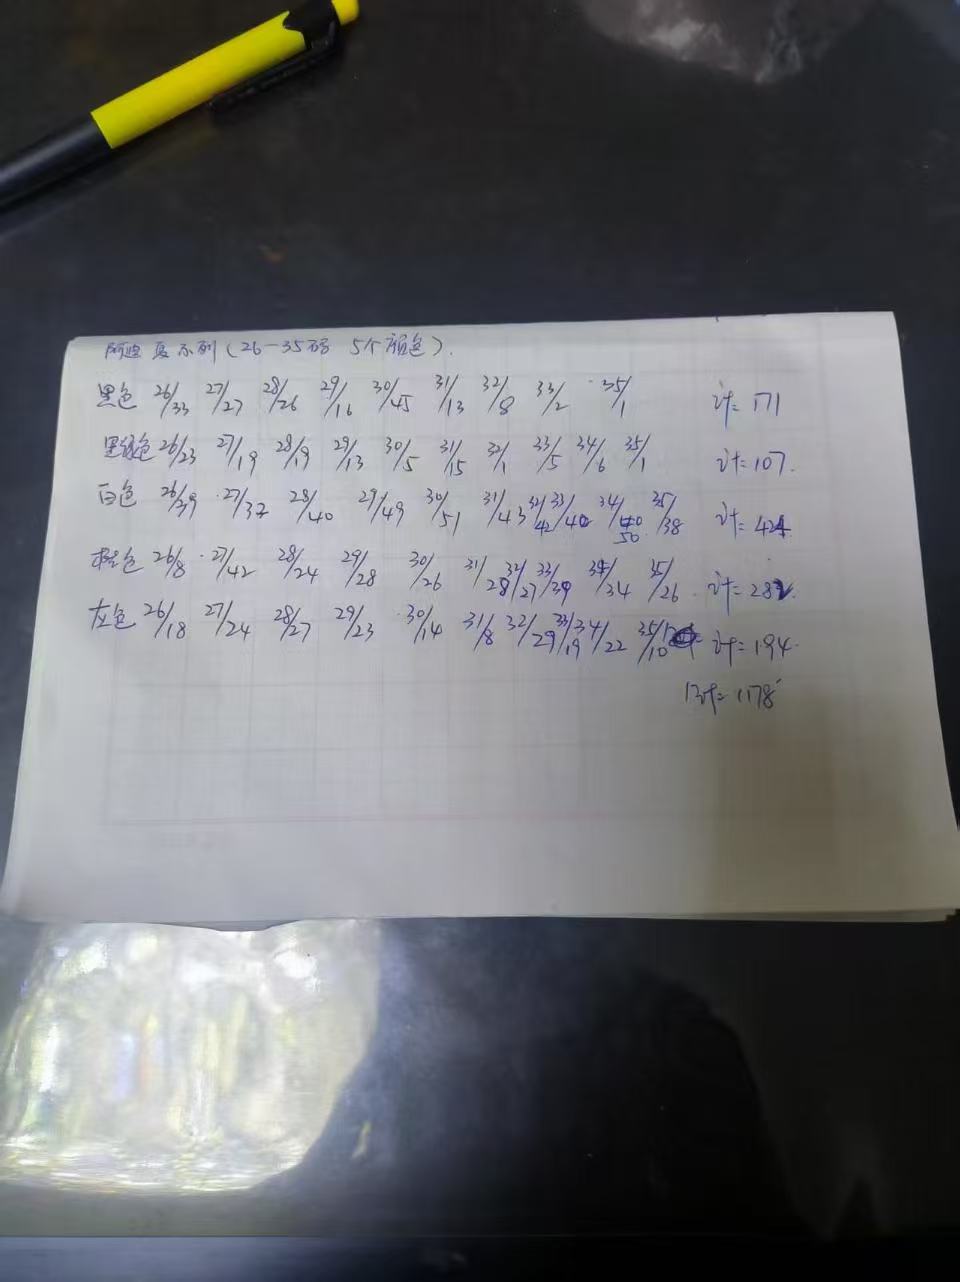 阿迪夏不列(26-35码 5个颜色).
黑色 26/33 27/27 28/26 29/16 30/45 31/13 32/8 33/2 35/1 计=171
黑绿色 26/23 27/19 28/19 29/13 30/5 31/15 32/1 33/5 34/6 35/1 计=107.
白色 26/39 27/32 28/40 29/49 30/51 31/43 32/42 33/40 34/50 35/38 计=424.
橙色 26/8 27/42 28/24 29/28 30/26 31/28 32/27 33/39 34/34 35/26 计=282.
灰色 26/18 27/24 28/27 29/23 30/14 31/8 32/29 33/19 34/22 35/10 计=194.
计=1178